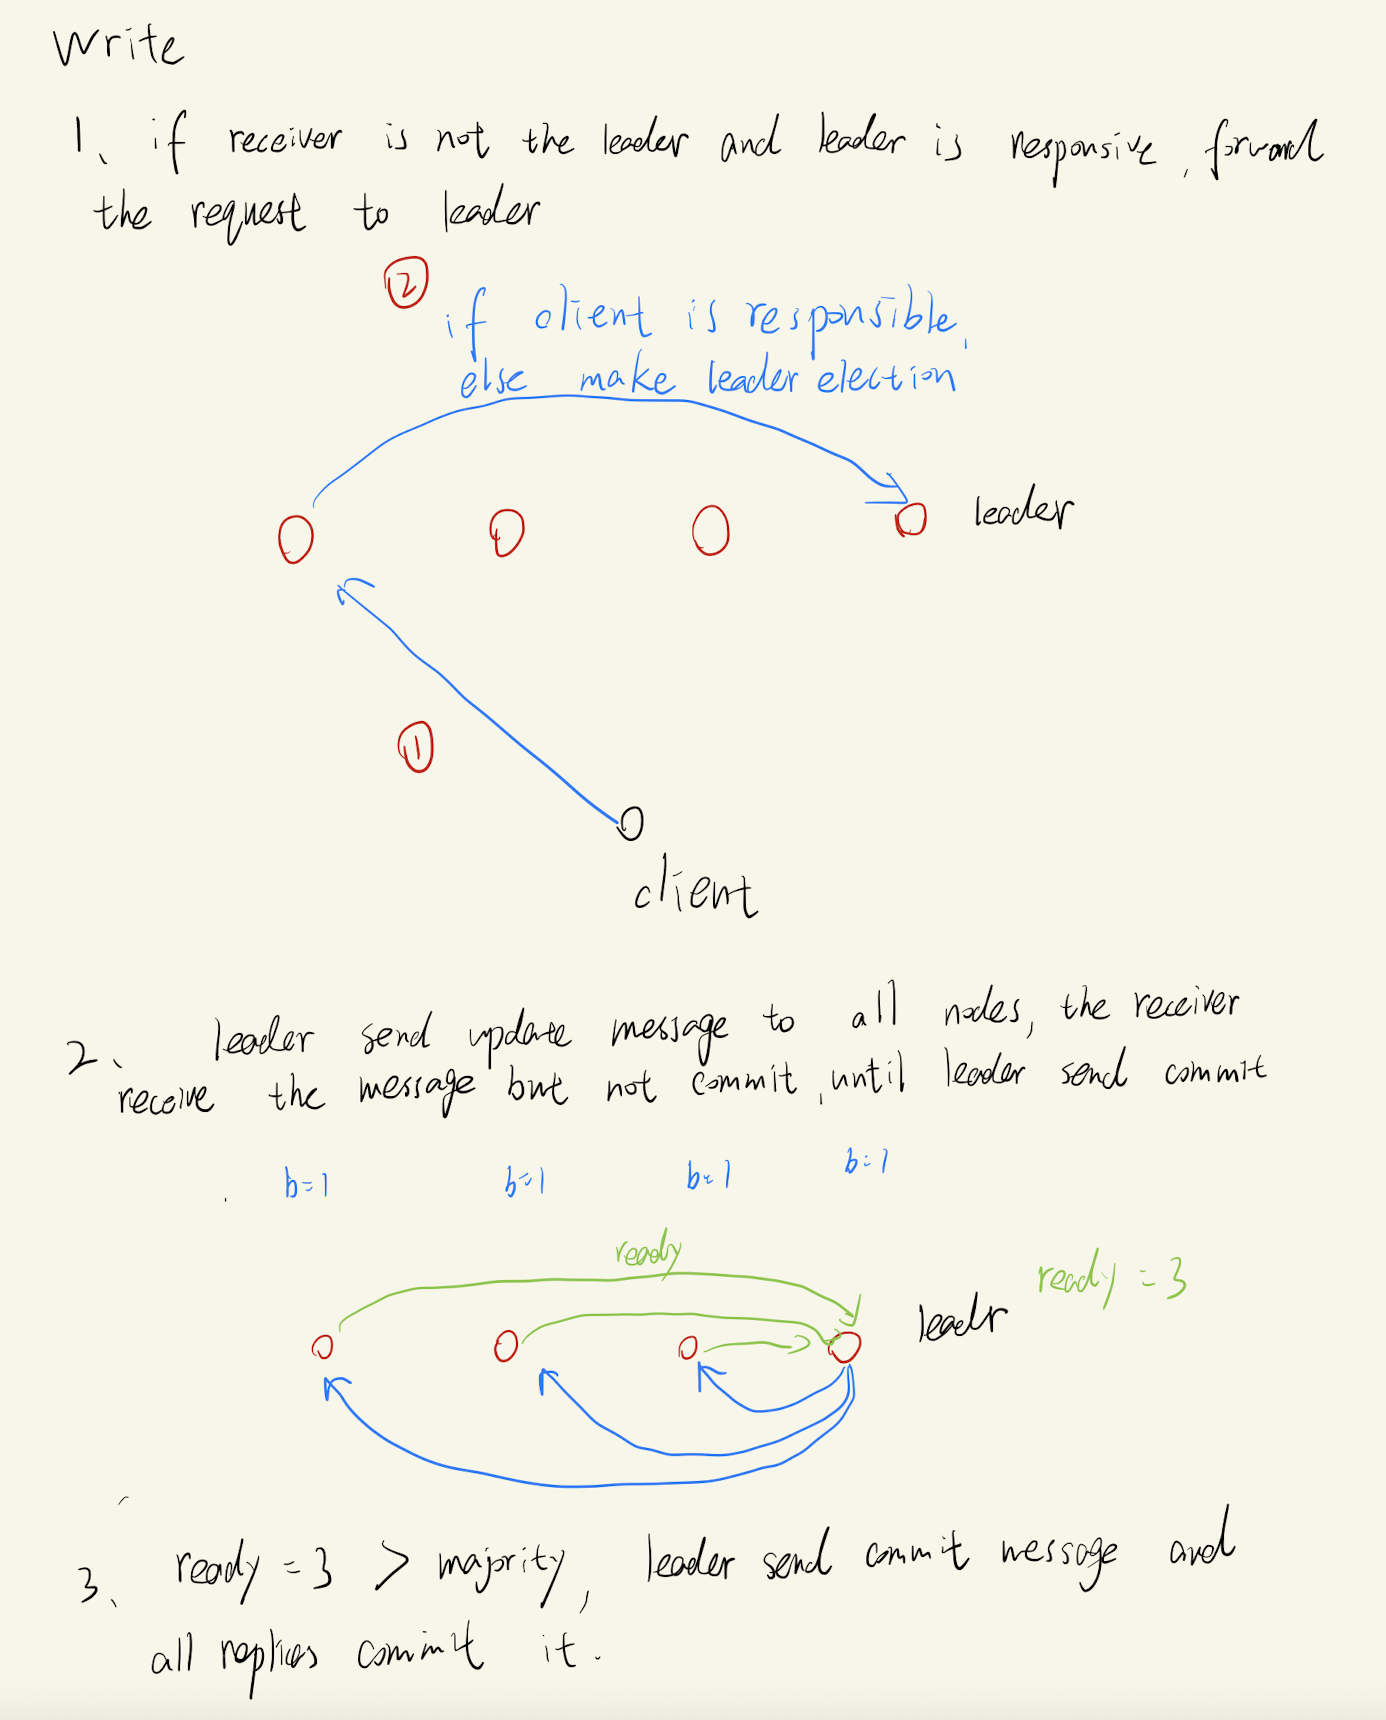 Write
1、if receiver is not the leader and leader is responsive, forward
the request to leader
②
if client is responsible,
else make leader election
leader
①
client
2、 leader send update message to all nodes, the receiver
receive the message but not commit, until leader send commit
b=1 b=1 b=1 b=1
ready
ready = 3
leadr
3、 ready = 3 > majority, leader send commit message and
all replicas commit it.